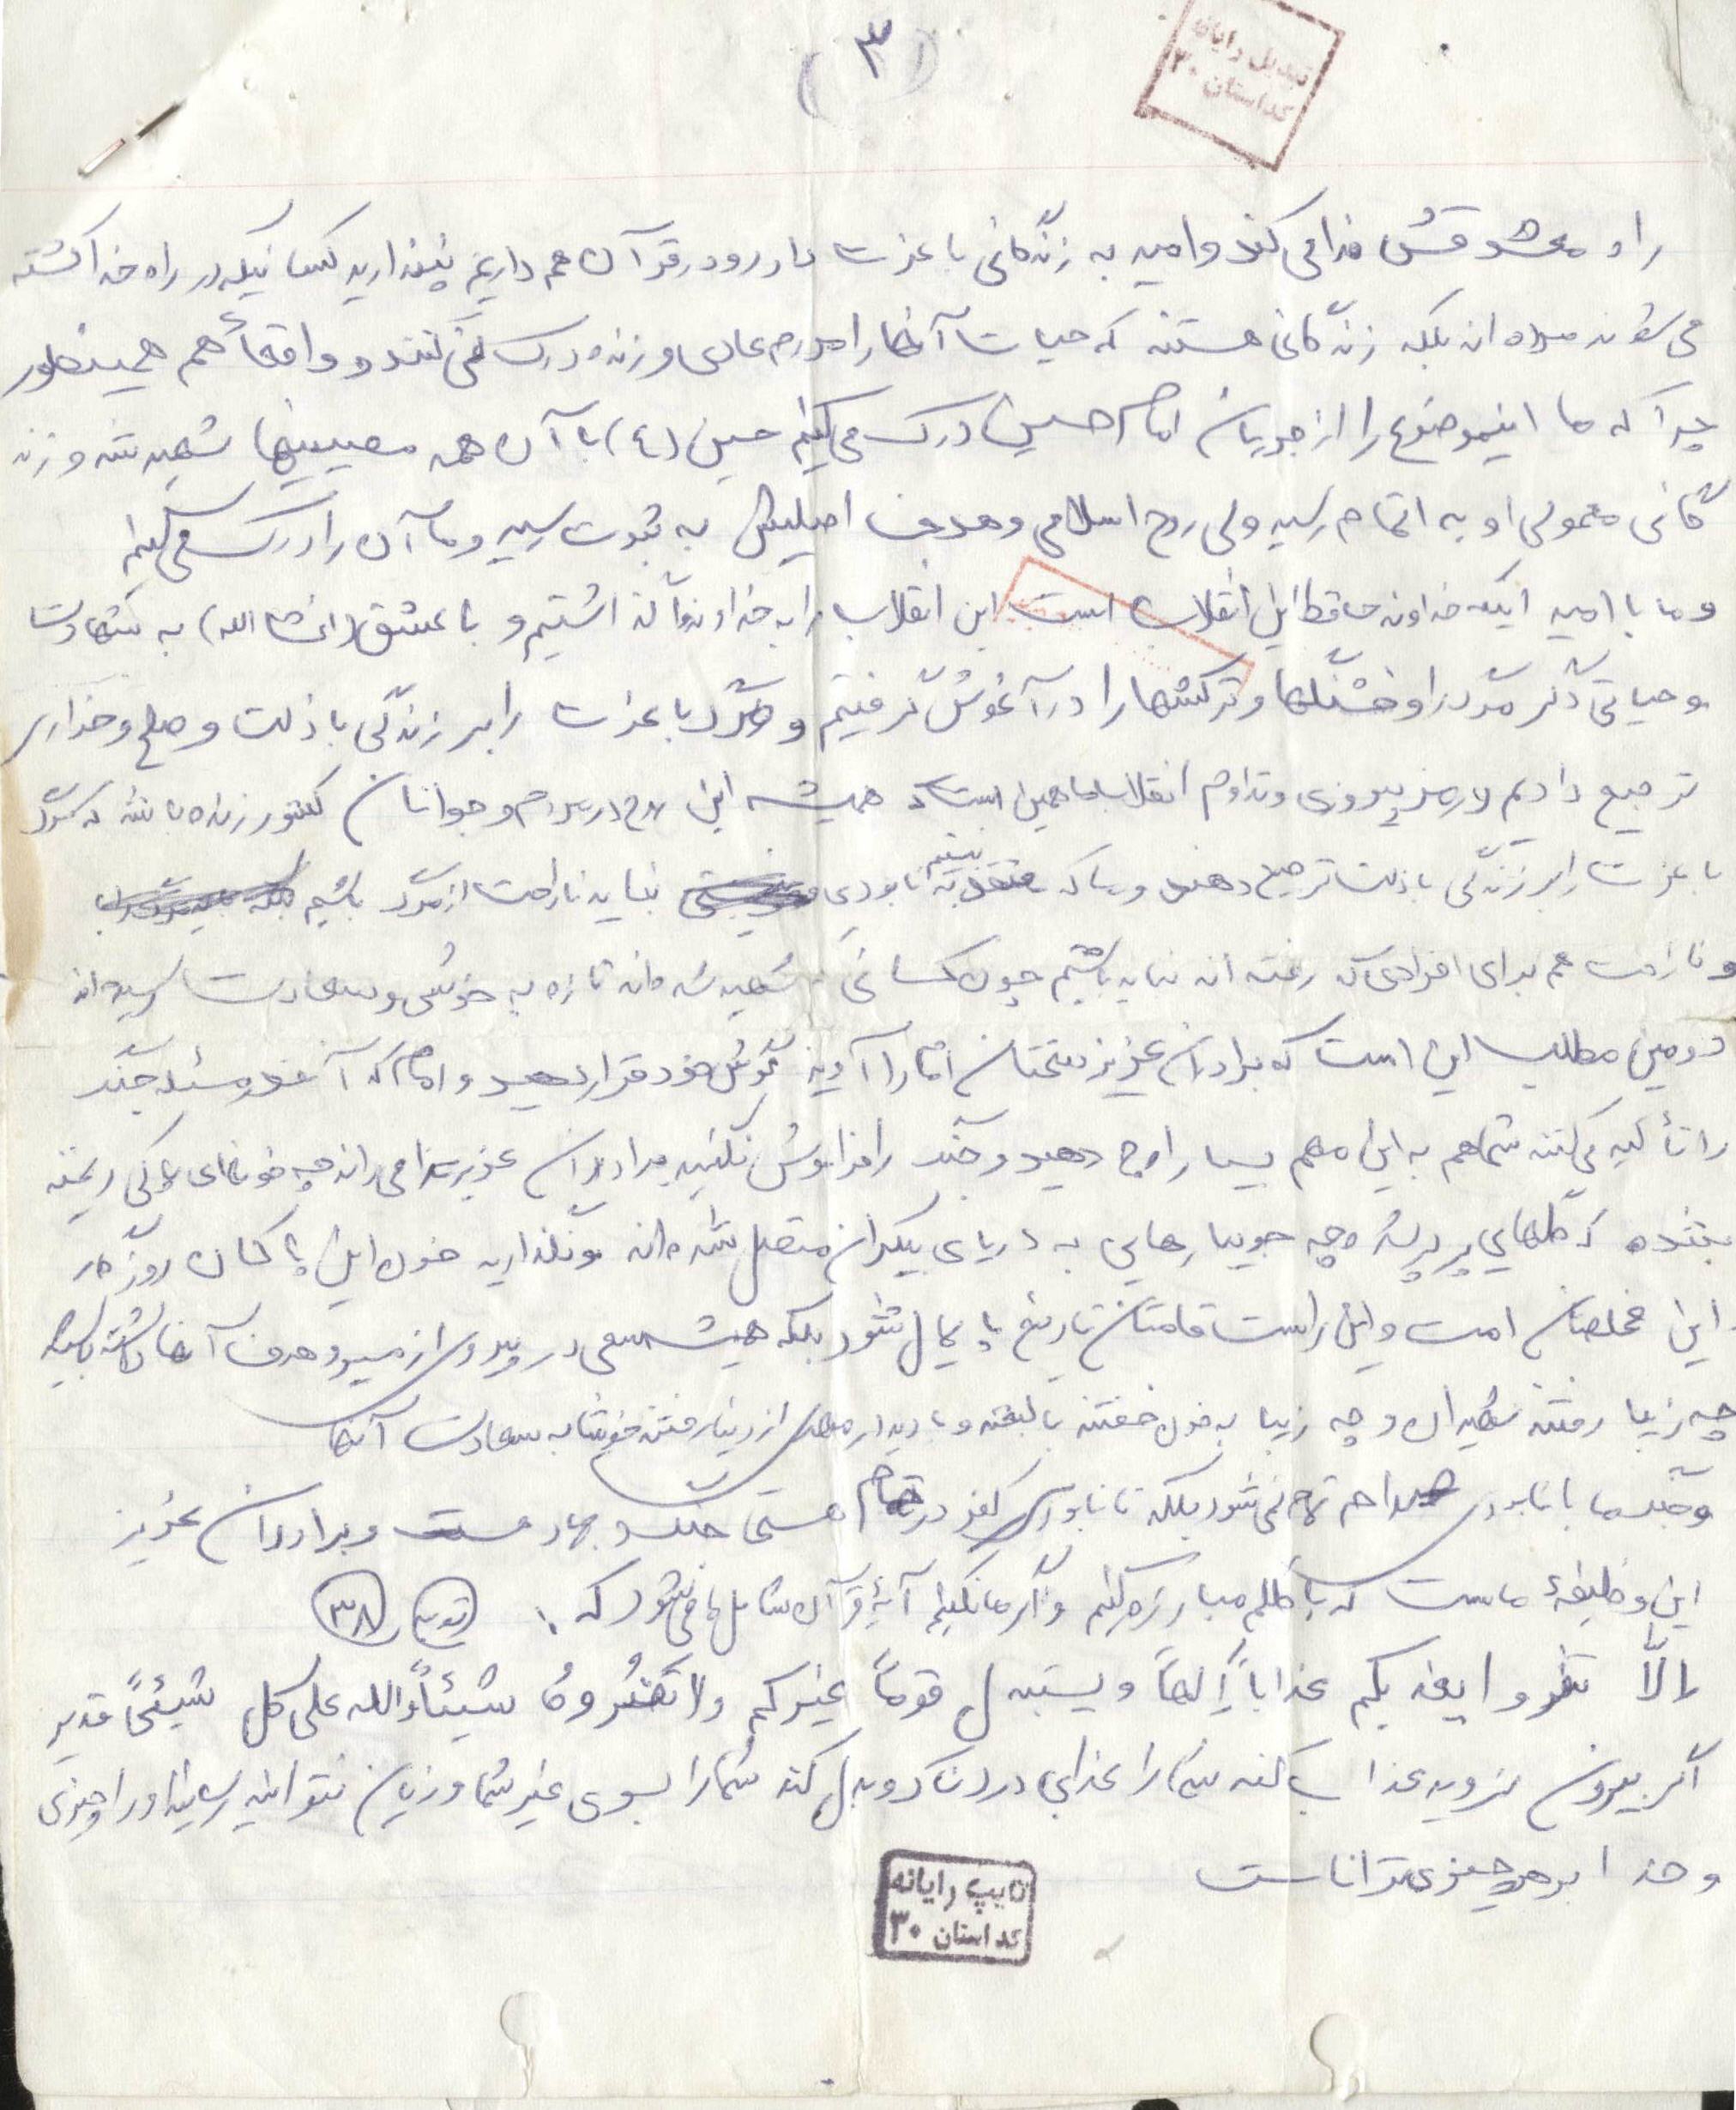 (۳)
تبدیل رایانه
کد استان ۳۰
راه معشوقش فدا می کند و امید به زندگانی با عزت دارد و در قرآن هم داریم پنپندارید کسانیکه در راه خدا کشته
می شوند مرده اند بلکه زندگانی هستند که حیات آنها را مردم عادی و زنده درک نمی کنند و واقعاً هم همینطور
چرا که ما اینموضوع را از جریان امام حسین درک می کنیم حسین (ع) با آن همه مصیبیتها شهید شد و زند
گانی معمولی او به اتمام رسید ولی روح اسلامی و هدف اصیلیش به ثبوت رسید و ما آن را درک می کنیم
و ما با امید اینکه خداوند حافظ این انقلاب است این انقلاب را به خداوند واگذاشتیم و با عشق (انشاالله) به شهادت
و حیاتی دگر مرگ را و فشنگها و ترکشها را در آغوش گرفتیم و مرگ با عزت را بر زندگی با ذلت و صلح و خداری
ترجیع دادیم و رمز پیروزی و تداوم انقلاب ما همین است که همیشه این روح در مردم و جوانان کشور زنده باشد که مرگ
با عزت را بر زندگی با ذلت ترجیح دهند و ما که معتقد به نابودی نیستیم نباید ناراحت از مرگ باشیم
و ناراحت هم برای افرادی که رفته اند نباید باشیم چون کسانی شهید شده اند تازه به خوشی و سعادت رسیده اند
دومین مطلب این است که برادران عزیز سخنان امام را آویزه گوش خود قرار دهید و امام که آنقدر مسئله جنگ
را تأکید می کنند شما هم به این مهم بسیار ارج دهید و جنگ را فراموش نکنید برادران عزیز خدا می داند چه خونهای پاکی ریخته
نشده که گلهایی پرپر شده چه جویبارهایی به دریای بیکران متصل شده اند و نگذارید خون این پاکان روزگار
این مخلصان امت و این راست قامتان تاریخ پایمال شود بلکه همیشه سعی در پیروی از مسیر و هدف آنها داشته باشید
چه زیبا رفتند شهیدان و چه زیبا به خون خفتند با لبخند و با دیدار مهدی از دنیا رفتند خوشا به سعادت آنها
و جنگ ما با نابودی صدام تمام نمی شود بلکه تا نابودی کفر در تمام هستی جنگ و جهاد هست و برادران عزیز
این وظیفهٔ ماست که با ظلم مبارزه کنیم و اگر ما نکنیم آیهٔ قرآن شامل ما می شود که: توبه ۳۸
الّا تنفروا یعذبکم عذاباً الیماً و یستبدل قوماً غیرکم ولا تضُروهُ شیئاً والله علی کل شیئیً قدیر
اگر بیرون نروید عذاب کند شما را عذابی دردناک و بدل کند شما را بسوی غیر شما و زیان نتوانید رسانید او را چیزی
و خدا بر هر چیزی تواناست
تایپ رایانه
کد استان ۳۰